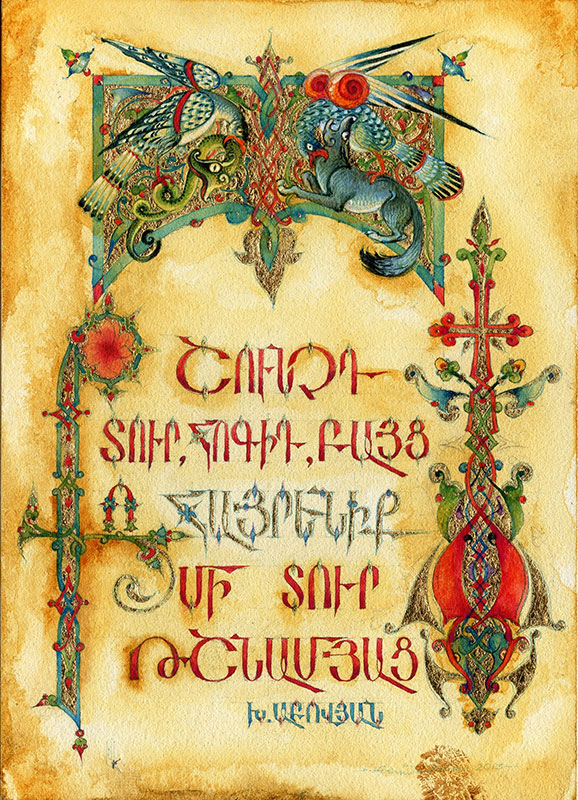 ՇՈՒՆՉԴ
ՏՈՒՐ, ՀՈԳԻԴ, ԲԱՅՑ
ՀԱՅՐԵՆԻՔ
ՄԻ ՏՈՒՐ
ԹՇՆԱՄՅԱՑ
Խ.ԱԲՈՎՅԱՆ